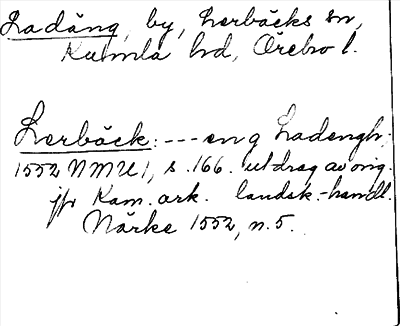 Ladäng, by, Lerbäcks sn,
Kumla hd, Örebro l.
Lerbäck: --- en g Ladengh;
1552 NMU 1, s. 166. utdrag av orig.
jfr Kam. ark. landsk.-handl.
Närke 1552, n. 5.